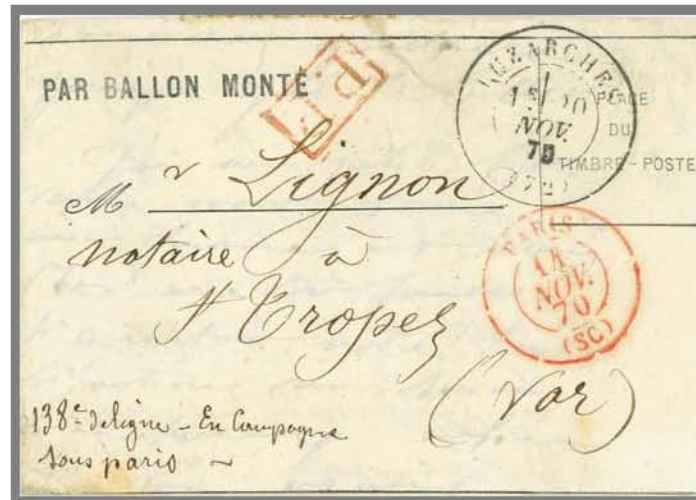 PAR BALLON MONTÉ
P.P.
LUZARCHES
1E/ 20
NOV.
70
(72)
PLACE
DU
TIMBRE-POSTE
Mr Lignon
notaire à
St Tropez
(Var)
PARIS
18
NOV.
70
(SC)
138e de ligne - En Campagne
sous paris -